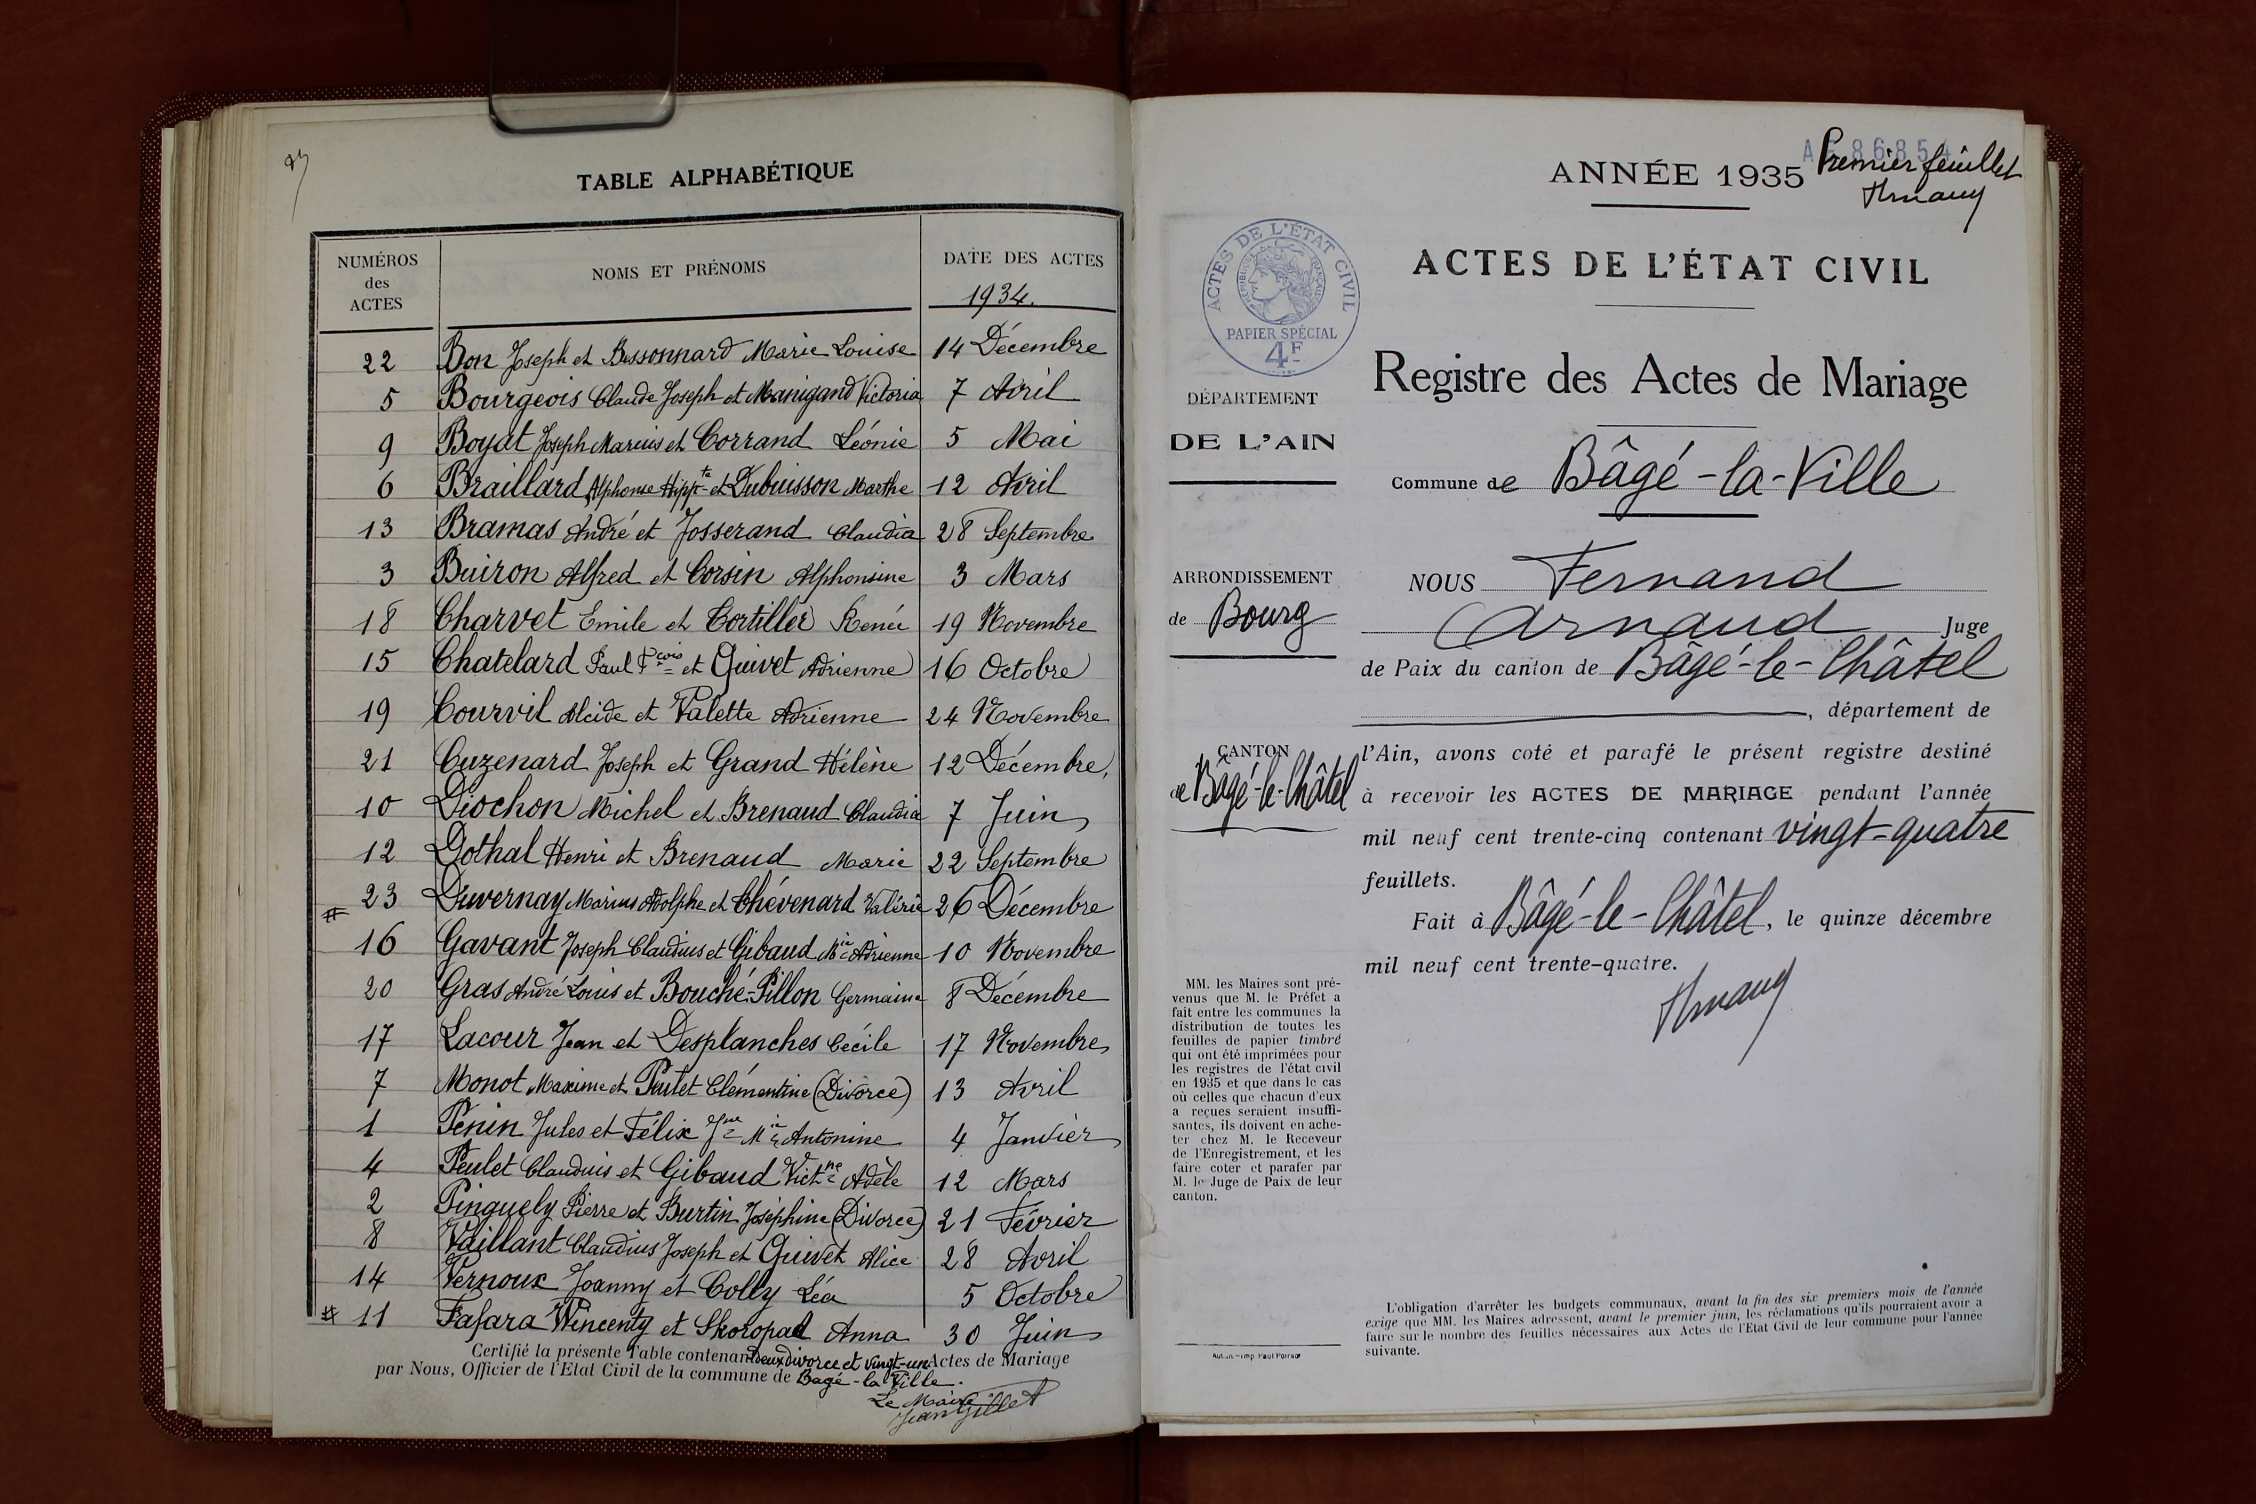 TABLE ALPHABÉTIQUE
NUMÉROS des ACTES
NOMS ET PRÉNOMS
DATE DES ACTES
1934.
22 Bon Joseph et Bessonnard Marie Louise 14 Décembre
5 Bourgeois Claude Joseph et Manigand Victoria 7 Avril
9 Boyat Joseph Marius et Corrand Léonie 5 Mai
6 Braillard Alphonse Hippte et Dubuisson Marthe 12 Avril
13 Bramas André et Josserand Claudia 28 Septembre
3 Buiron Alfred et Corsin Alphonsine 3 Mars
18 Charvet Emile et Cortiller Renée 19 Novembre
15 Chatelard Paul Fcois et Guivet Adrienne 16 Octobre
19 Courvil Alcide et Valette Adrienne 24 Novembre
21 Cuzenard Joseph et Grand Hélène 12 Décembre,
10 Diochon Michel et Brenaud Claudia 7 Juin
12 Dothal Henri et Brenaud Marie 22 Septembre
# 23 Duvernay Marius Adolphe et Chévenard Valérie 26 Décembre
16 Gavant Joseph Claudius et Gibaud Mie Adrienne 10 Novembre
20 Gras André Louis et Bouché-Pillon Germaine 8 Décembre
17 Lacour Jean et Desplanches Cécile 17 Novembre
7 Monot Maxime et Peulet Clémentine (Divorce) 13 Avril
1 Penin Jules et Félix Jne Mie Antonine 4 Janvier
4 Peulet Claudius et Gibaud Victne Adèle 12 Mars
2 Pinguely Pierre et Burtin Joséphine (Divorce) 21 Février
8 Vaillant Claudius Joseph et Guivet Alice 28 Avril
14 Vernoux Joanny et Colly Léa 5 Octobre
# 11 Fafara Wincenty et Skoropad Anna 30 Juin
Certifié la présente Table contenant deux divorce et vingt-un Actes de Mariage
par Nous, Officier de l'Etat Civil de la commune de Bagé-la-Ville.
Le Maire
Jean Gillet
Premier feuillet
Arnaud
ANNÉE 1935
ACTES DE L'ÉTAT CIVIL
RÉPUBLIQUE FRANÇAISE
PAPIER SPÉCIAL
4F
ACTES DE L'ÉTAT CIVIL
Registre des Actes de Mariage
DÉPARTEMENT
DE L'AIN
Commune de Bâgé-la-Ville
ARRONDISSEMENT
de Bourg
NOUS Fernand
Arnaud Juge
de Paix du canton de Bâgé-le-Châtel
, département de
CANTON
de Bâgé-le-Châtel
l'Ain, avons coté et parafé le présent registre destiné
à recevoir les ACTES DE MARIAGE pendant l'année
mil neuf cent trente-cinq contenant vingt-quatre
feuillets.
Fait à Bâgé-le-Châtel, le quinze décembre
mil neuf cent trente-quatre.
Arnaud
MM. les Maires sont pré-
venus que M. le Préfet a
fait entre les communes la
distribution de toutes les
feuilles de papier timbré
qui ont été imprimées pour
les registres de l'état civil
en 1935 et que dans le cas
où celles que chacun d'eux
a reçues seraient insuffi-
santes, ils doivent en ache-
ter chez M. le Receveur
de l'Enregistrement, et les
faire coter et parafer par
M. le Juge de Paix de leur
canton.
L'obligation d'arrêter les budgets communaux, avant la fin des six premiers mois de l'année
exige que MM. les Maires adressent, avant le premier juin, les réclamations qu'ils pourraient avoir à
faire sur le nombre des feuilles nécessaires aux Actes de l'Etat Civil de leur commune pour l'année
suivante.